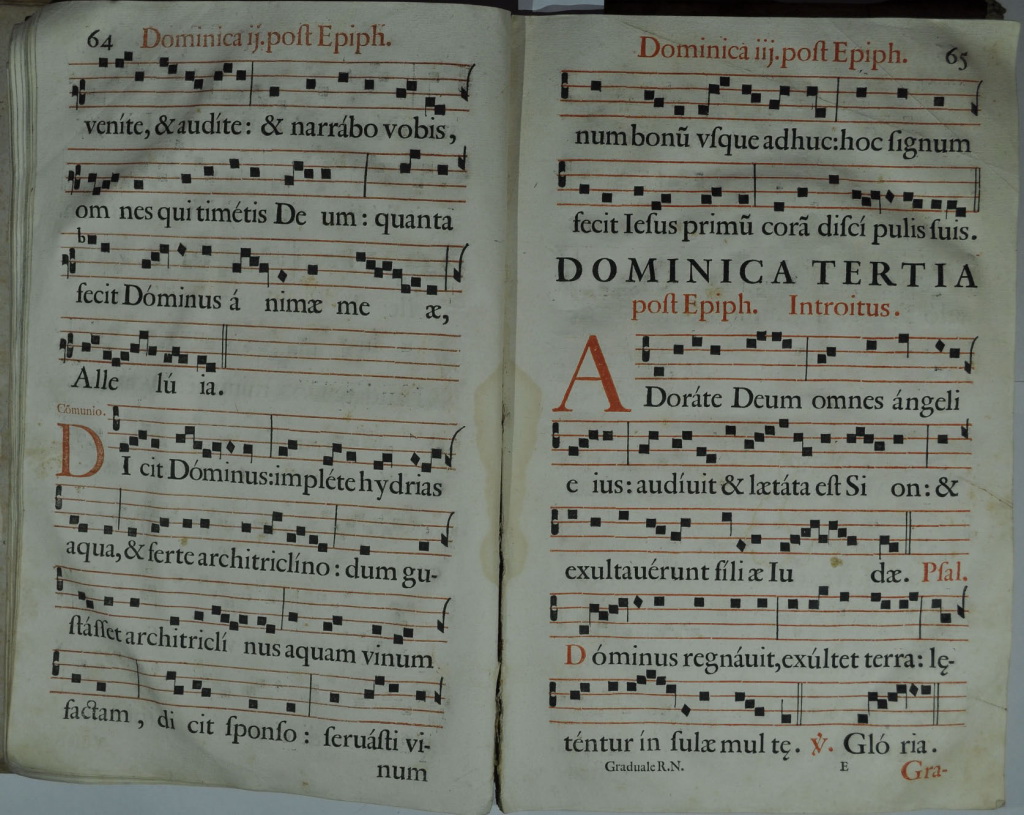 64 Dominica ij. poſt Epiph.
veníte, & audíte: & narrábo vobis,
om nes qui timétis De um: quanta
fecit Dóminus á nimæ me æ,
Alle lú ia.
Cõmunio.
DI cit Dóminus: impléte hydrias
aqua, & ferte architriclíno: dum gu-
ſtáſſet architriclí nus aquam vinum
factam, di cit ſponſo: ſeruáſti vi-
num
Dominica iij. poſt Epiph. 65
num bonũ vſque adhuc: hoc ſignum
fecit Ieſus primũ corã diſcí pulis ſuis.
DOMINICA TERTIA
poſt Epiph. Introitus.
ADoráte Deum omnes ángeli
e ius: audíuit & lætáta eſt Si on: &
exultauérunt fíli æ Iu dæ. Pſal.
Dóminus regnáuit, exúltet terra: lę-
téntur ín ſulæ mul tę. ℣. Gló ria.
Graduale R.N. E Gra-